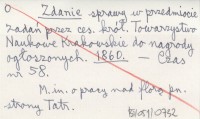 O Zdanie sprawy w przedmiocie
zadań przez ces. król. Towarzystwo
Naukowe Krakowskie do nagrody
ogłoszonych. 1860. — Czas
nr 58.
M.in. o pracy nad florą pn.
strony Tatr.